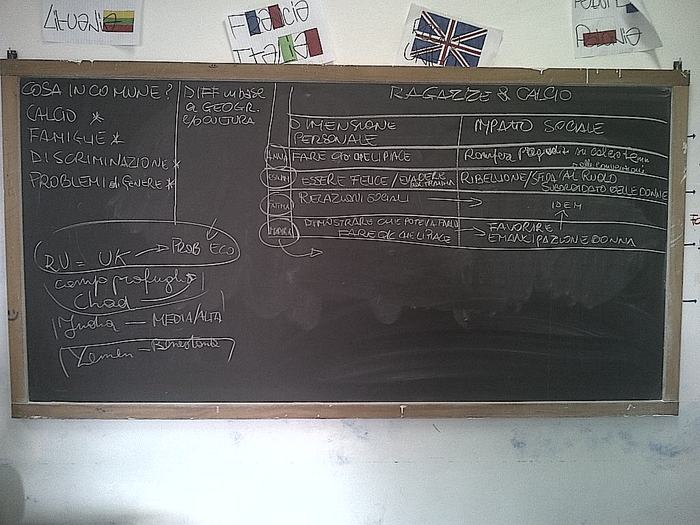 LITUANIA
FRANCIA
ITALIA
COSA IN COMUNE?
CALCIO *
FAMIGLIE *
DISCRIMINAZIONE *
PROBLEMI di GENERE *
DIFF in base
a GEOGR.
e/o CULTURA
RU = UK → PROB ECO
campo profughi
Chad
India — MEDIA/ALTA
Yemen — Benestante
RAGAZZE & CALCIO
DIMENSIONE
PERSONALE
IMPATTO SOCIALE
ANNA
FARE CIÒ CHE LI PIACE
Rompere su
ESSERE FELICE / EVADERE
RIBELLIONE/SFIDA AL RUOLO
SUBORDINATO DELLE DONNE
FATIMA
RELAZIONI SOCIALI →
IDEM
DIMOSTRARE CHE POTEVA FARLO
FARE CIÒ CHE LI PIACE
→ FAVORIRE
EMANCIPAZIONE DONNA